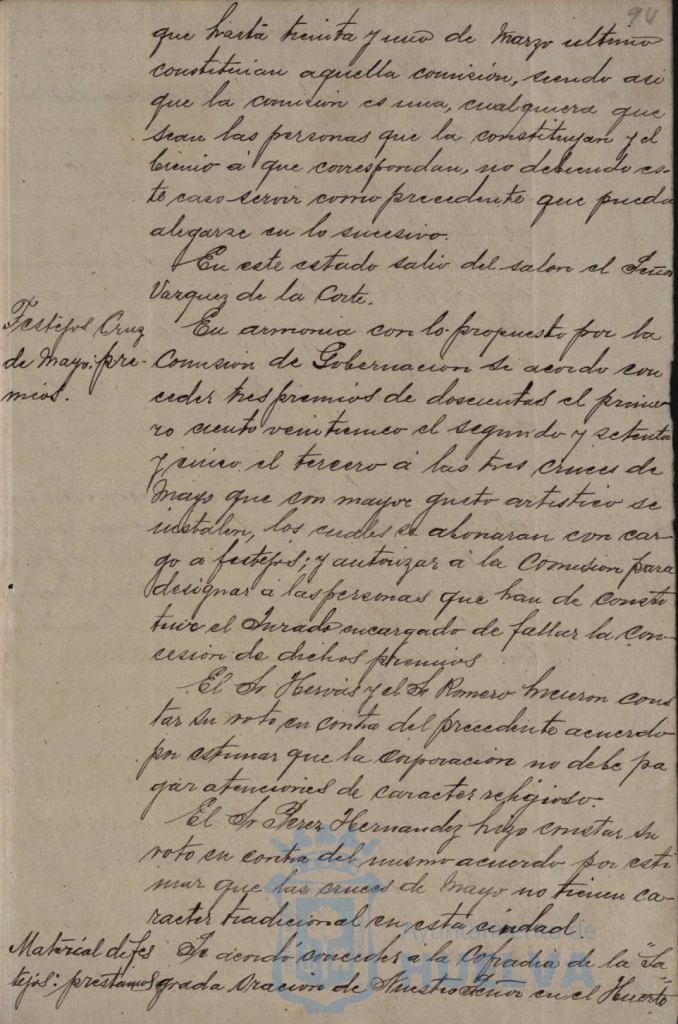 94
que hasta treinta y uno de Marzo ultimo
constituian aquella comisión, siendo asi
que la comision es una, cualquiera que
sean las personas que la constituyan y el
bienio á que correspondan, no debiendo es-
te caso servir como precedente que pueda
alegarse en lo sucesivo.
En este estado salió del salon el Señor
Vazquez de la Corte.
Festejos Cruz
de Mayo: pre-
mios.
En armonia con lo propuesto por la
Comision de Gobernacion se acordo con
ceder tres premios de doscientas el prime-
ro ciento veinticinco el segundo y setenta
y cinco el tercero á las tres cruces de
Mayo que con mayor gusto artistico se
instalen, los cuales se abonaran con car-
go a festejos; y autorizar á la Comision para
designar á las personas que han de consti
tuir el Jurado encargado de fallar la con-
cesión de dichos premios
El Sr Hervás y el Sr Romero hicieron cons
tar su voto en contra del precedente acuerdo
por estimar que la Corporación no debe pa
gar atenciones de caracter religioso.
El Sr Perez Hernandez hizo constar su
voto en contra del mismo acuerdo por esti
mar que las cruces de Mayo no tienen ca-
racter tradicional en esta ciudad.
Material de fes
tejos: prestamos
Se acordó conceder á la Cofradia de la "Sa-
grada Oracion de Nuestro Señor en el Huerto
de
HUELVA